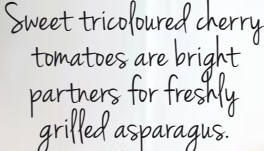 Sweet tricoloured cherry
tomatoes are bright
partners for freshly
grilled asparagus.